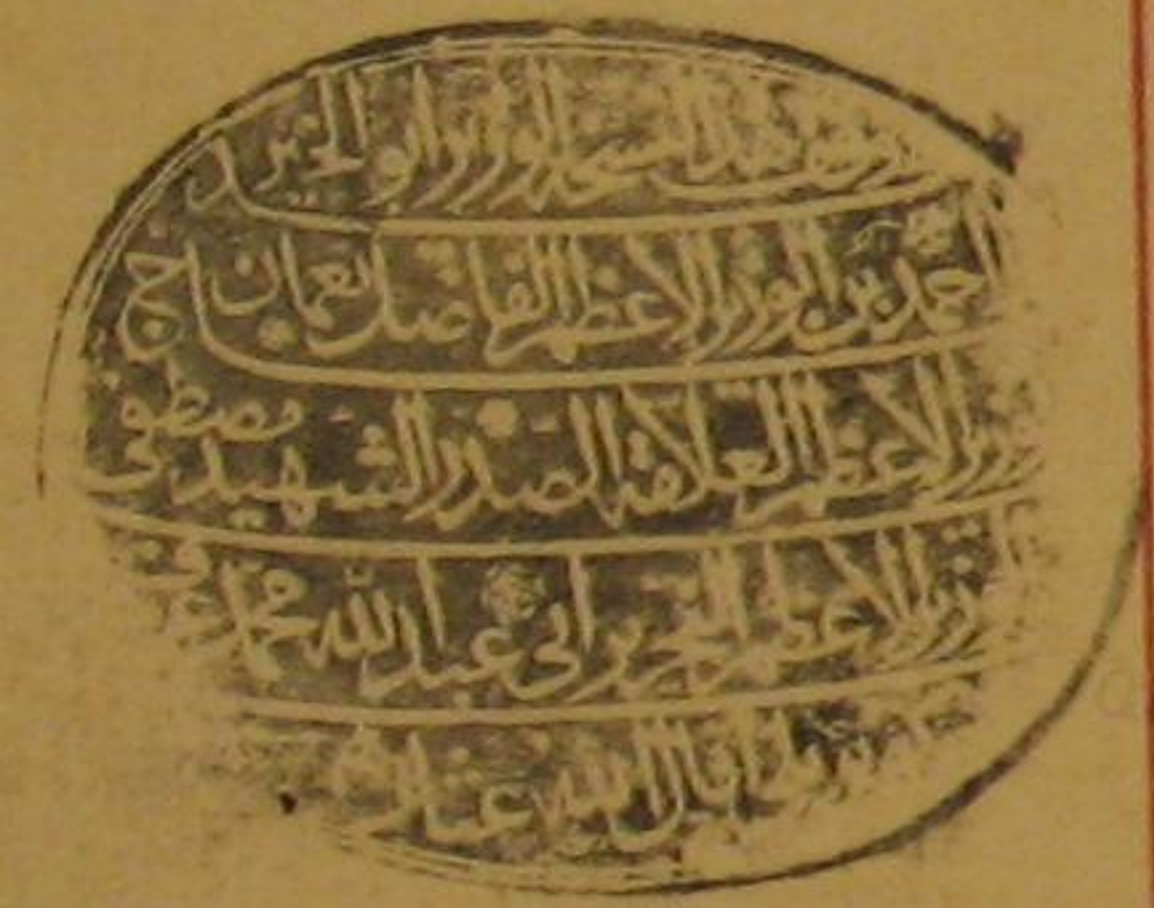 وقف هذه النسخه الوزير ابو الخير الحاج
احمد بن الوزير الاعظم الفاضل نعمان
الوزير الاعظم العلامه الصدر الشهيد مصطفى
الوزير الاعظم النحرير ابى عبد الله محمد عرف
اقال الله عثارهم